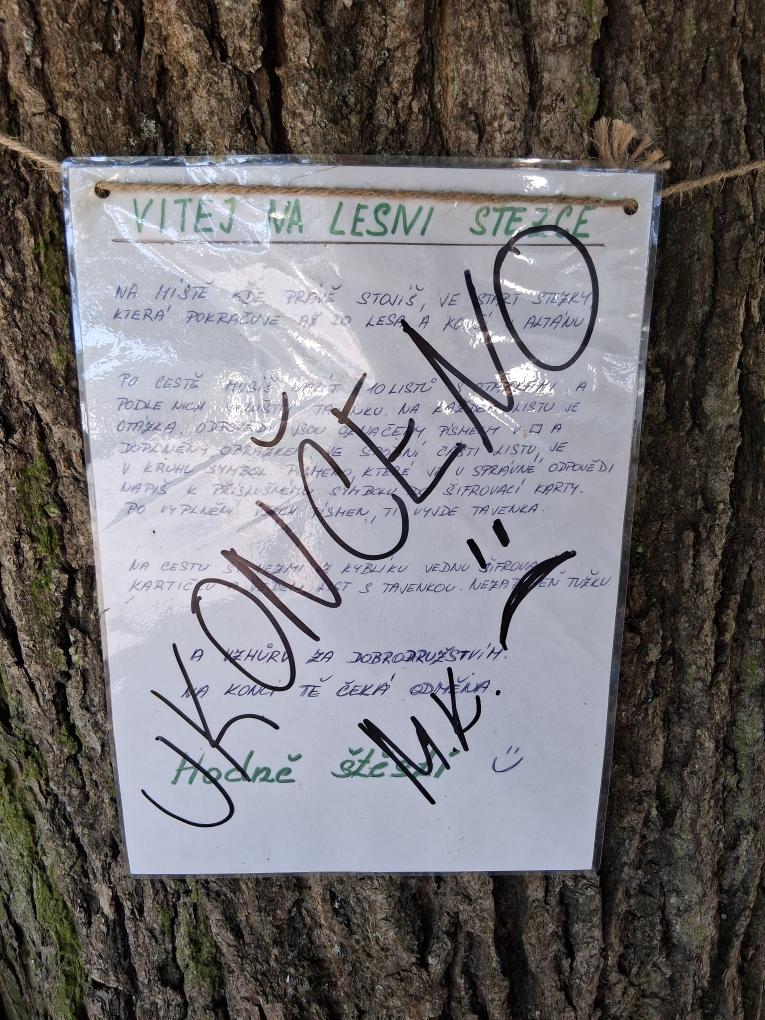 VITEJ NA LESNI STEZCE
NA MÍSTĚ KDE PRÁVĚ STOJÍŠ, JE START STEZKY,
KTERÁ POKRAČUJE AŽ DO LESA A KONČÍ ALTÁNU
PO CESTĚ MUSÍŠ 10 LISTŮ S OTÁZKAMI A
PODLE NICH TAJENKU. NA KAŽDÉM LISTU JE
OTÁZKA, ODPOVĚDI JSOU OZNAČENY PÍSMENY V □ A
DOPLNĚNY OBRÁZKEM. VE SPODNÍ ČÁSTI LISTU, JE
V KRUHU SYMBOL. PÍSMENO, KTERÉ JE U SPRÁVNÉ ODPOVĚDI
NAPIŠ K PŘÍSLUŠNÉMU SYMBOLU DO ŠIFROVACÍ KARTY.
PO VYPLNĚNÍ VŠECH PÍSMEN, TI VYJDE TAJENKA.
NA CESTU SI VEZMI Z KYBLIKU JEDNU
KARTIČKU LIST S TAJENKOU. TUŽKU.
A VZHŮRU ZA DOBRODRUŽSTVÍM.
NA KONCI TĚ ČEKÁ ODMĚNA.
Hodně štěstí
UKONČENO
MK.